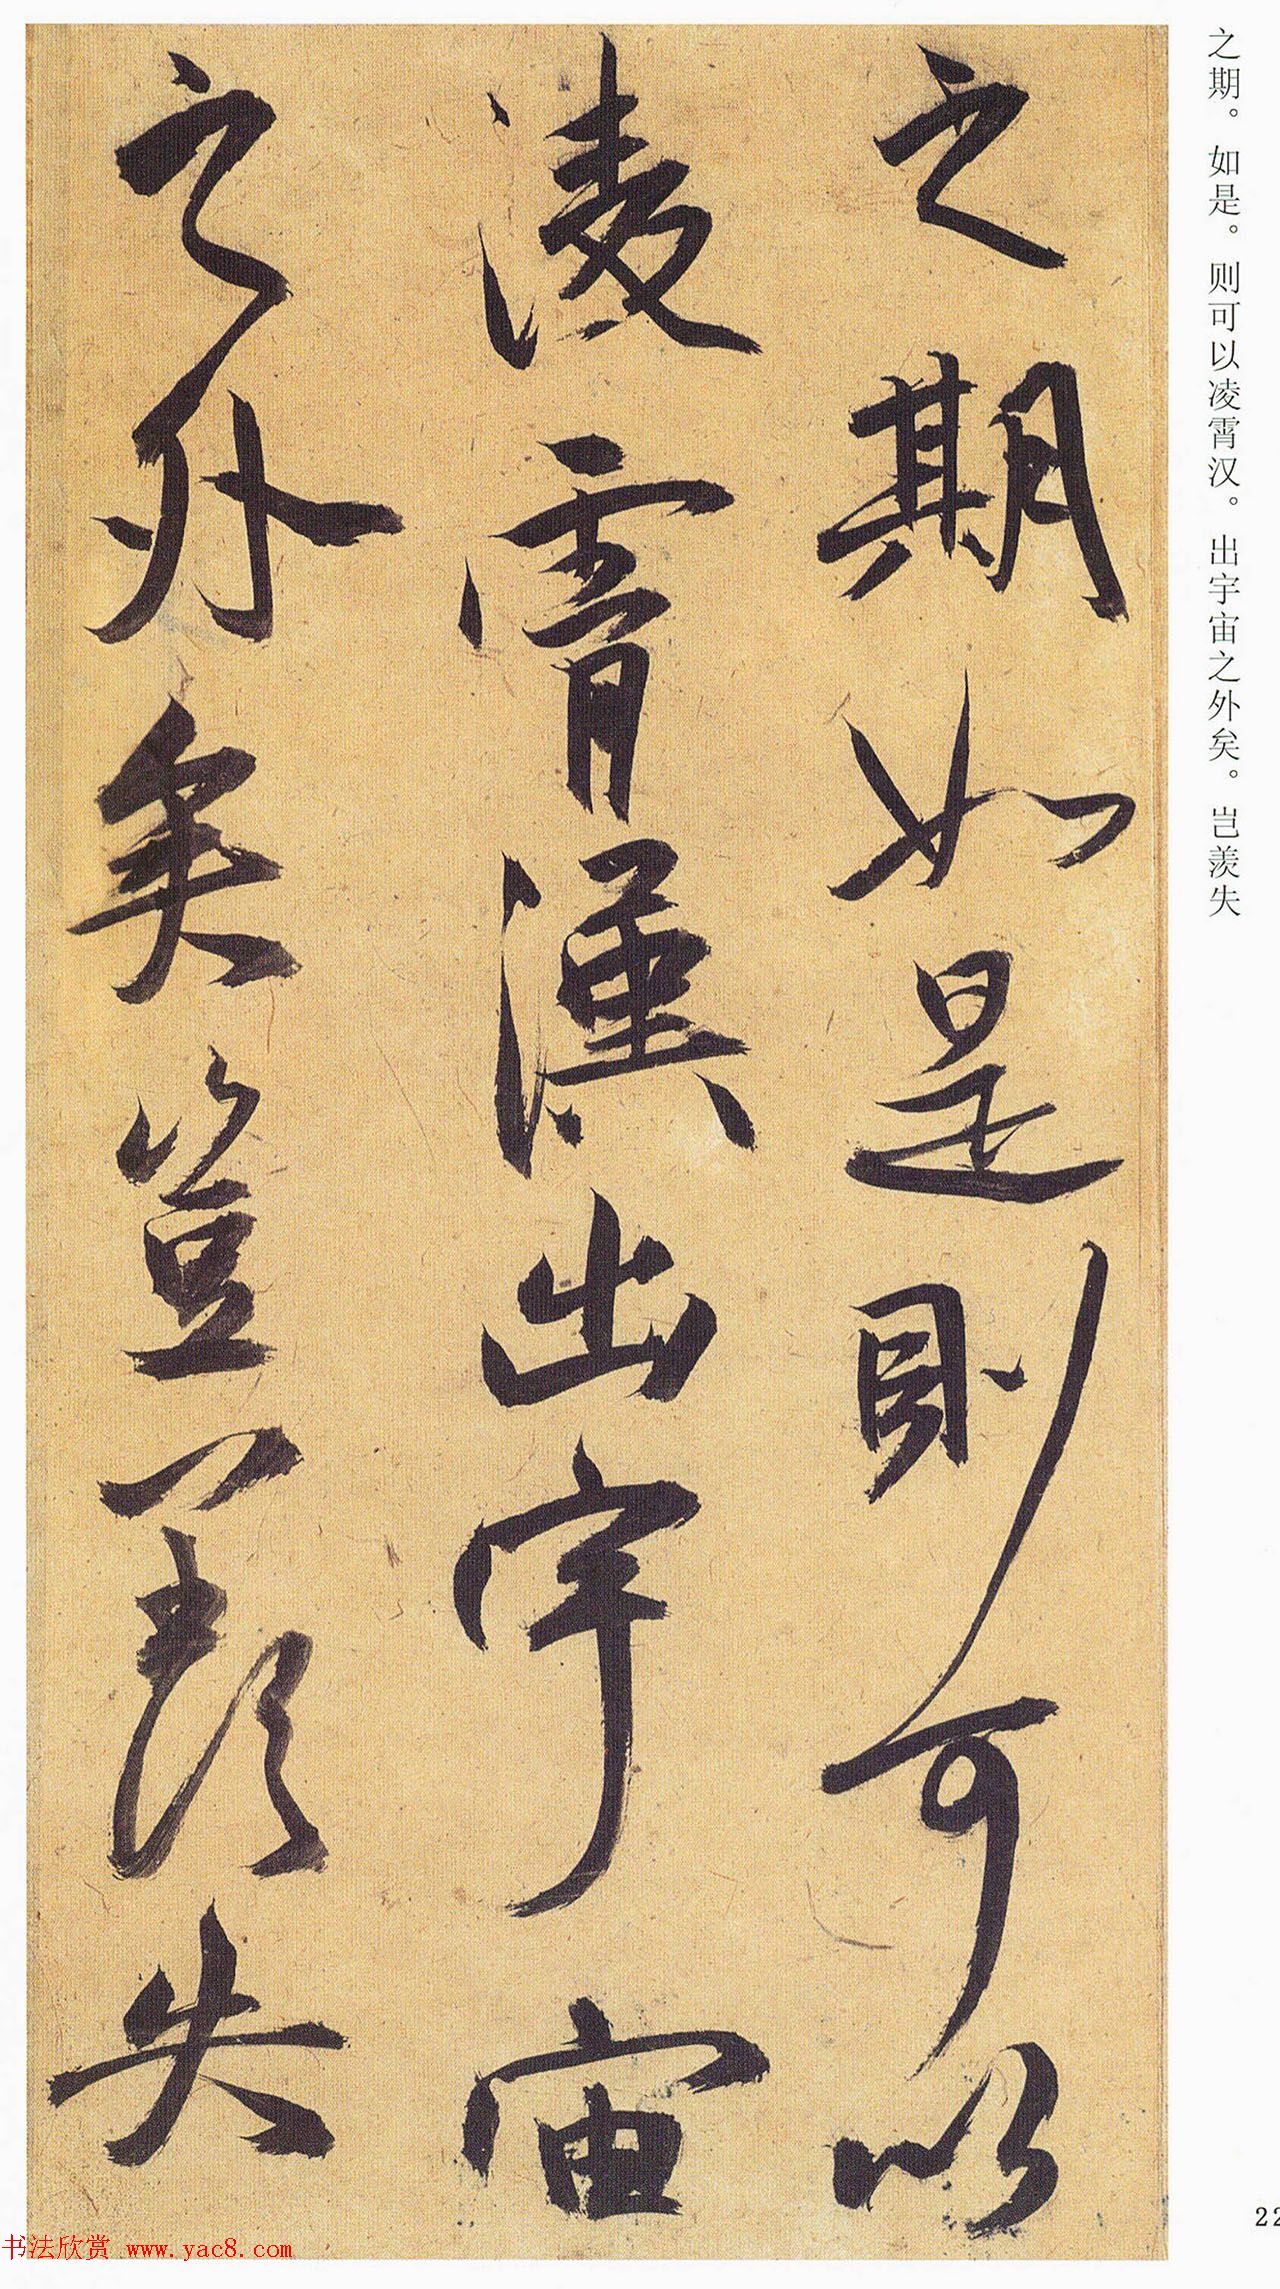 之期。如是。则可以凌霄汉。出宇宙之外矣。岂羡失
之期如是則可以
凌霄漢出宇宙
之外矣豈羡失
22
书法欣赏 www.yac8.com